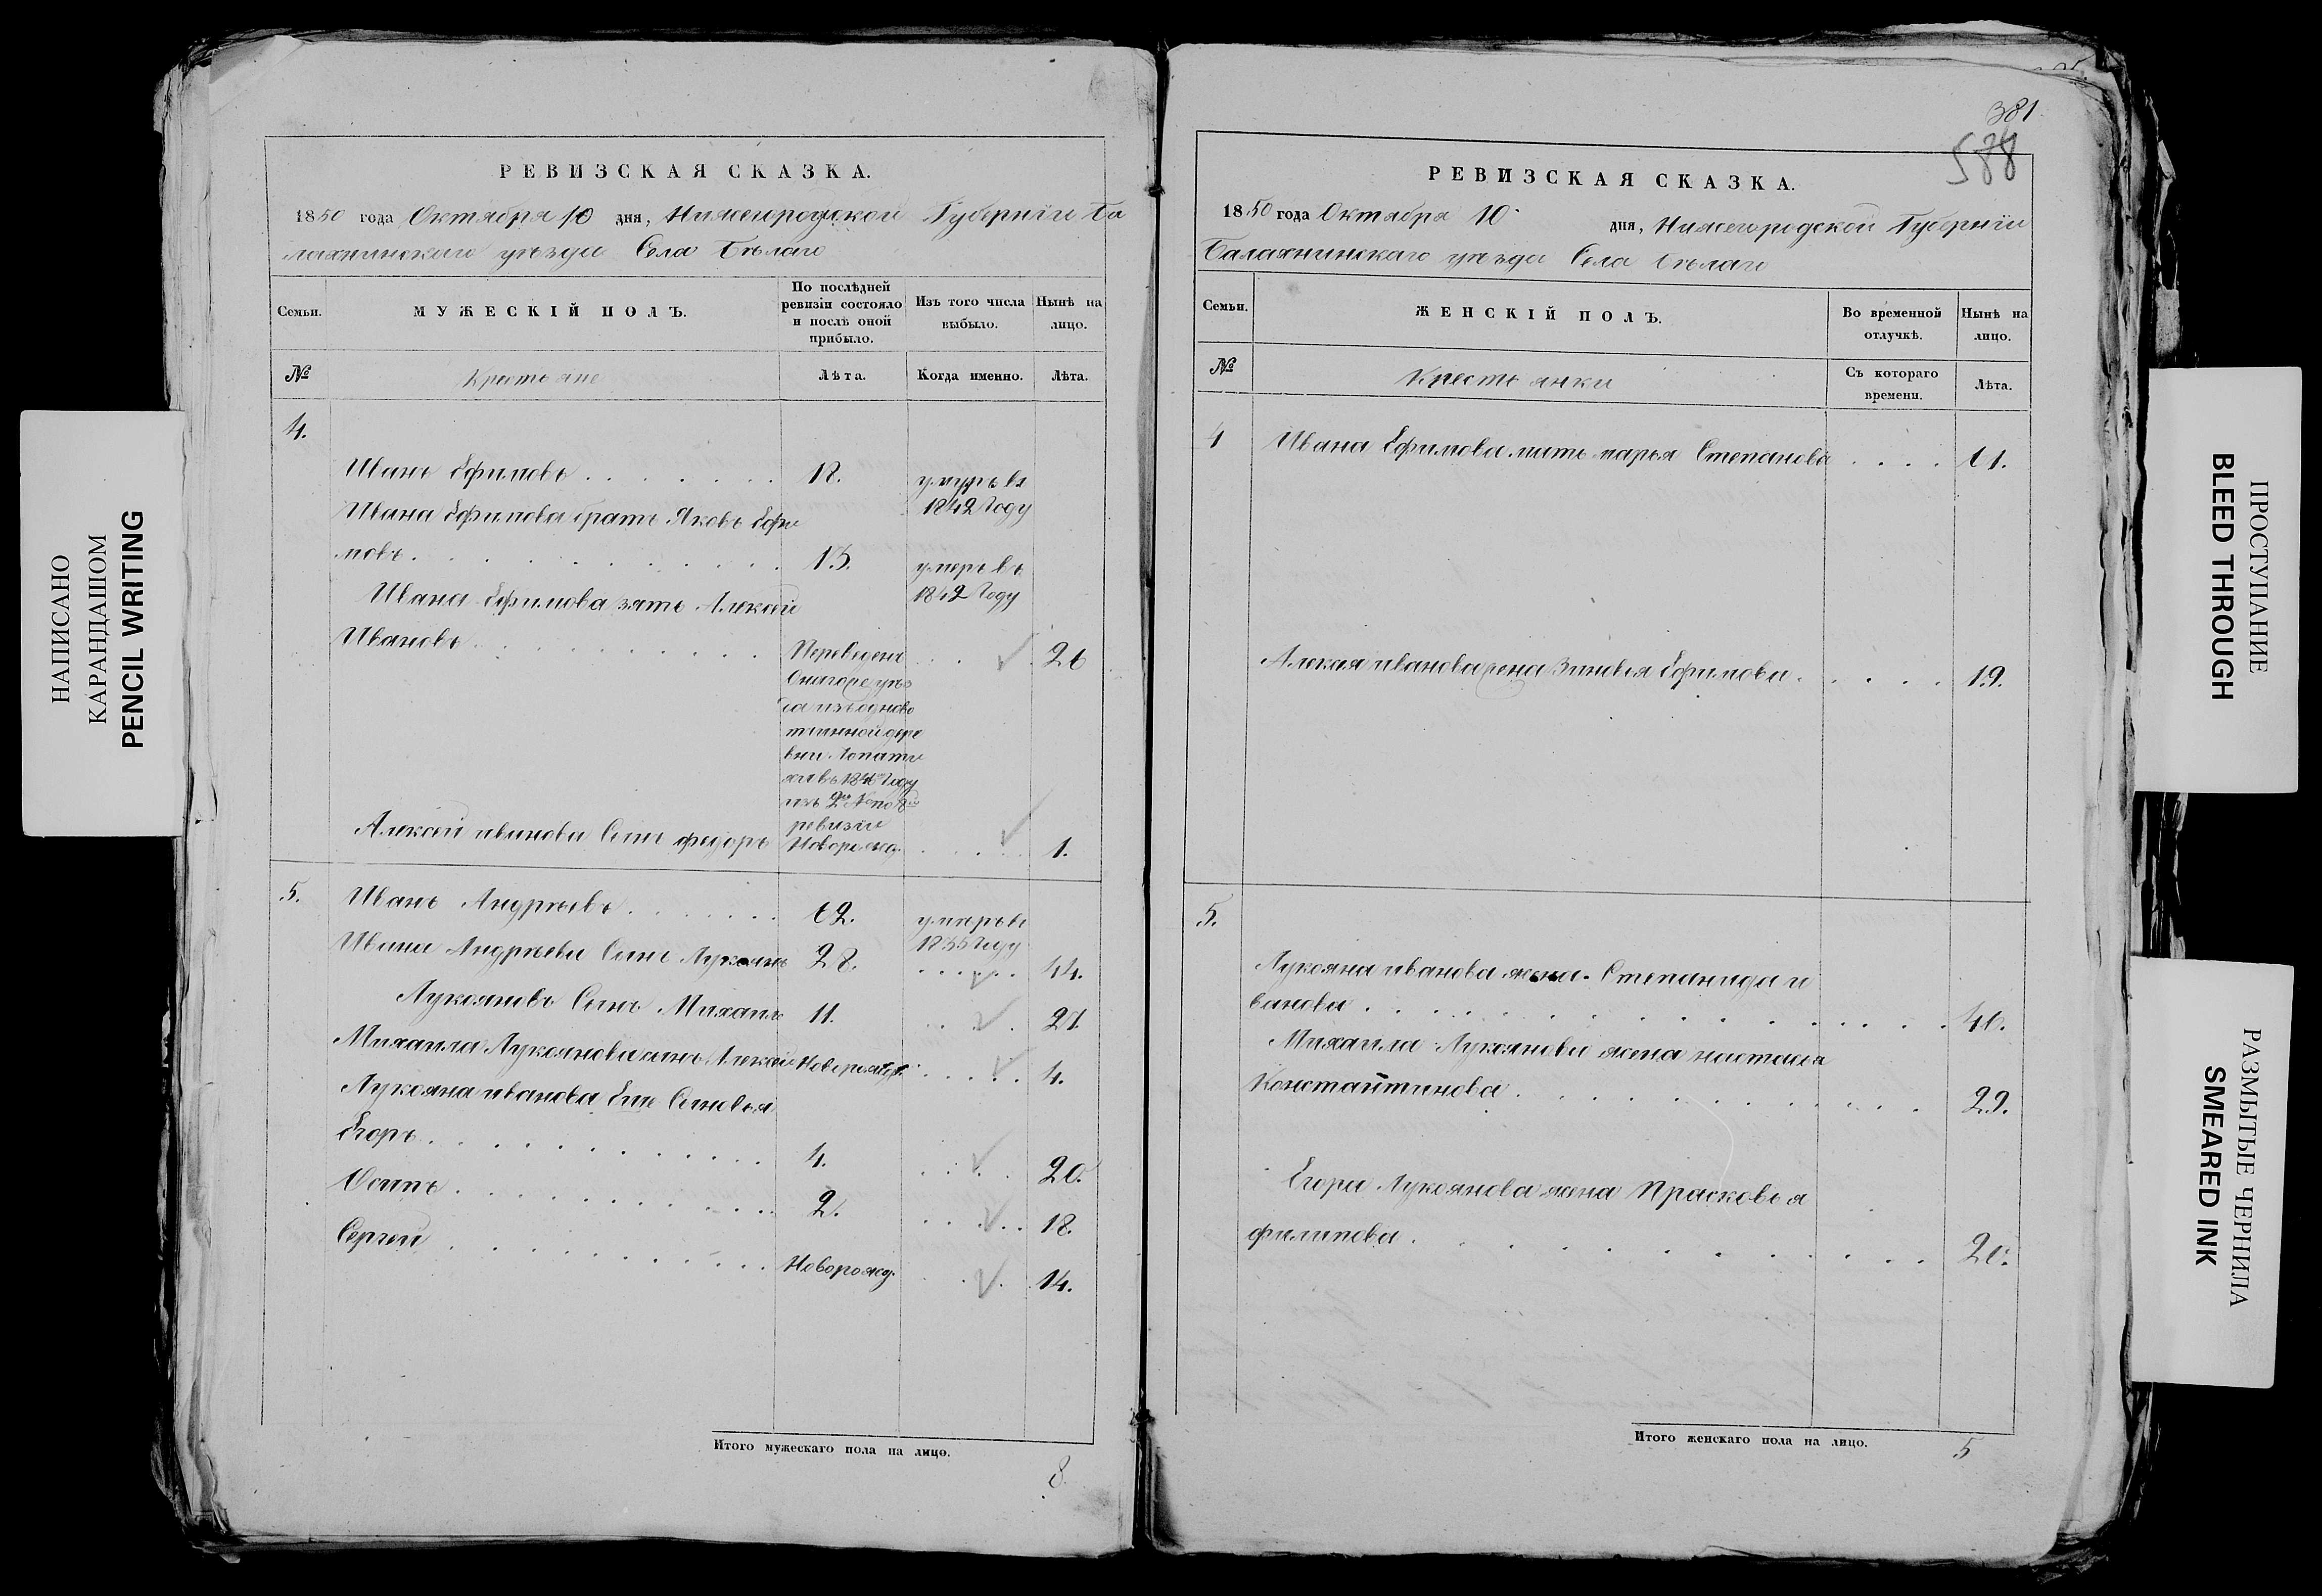 НАПИСАНО
КАРАНДАШОМ
PENCIL WRITING
РЕВИЗСКАЯ СКАЗКА.
1850 года Октября 10 дня, Нижегородской Губерніи Ба
лахнинскаго уѣзда Села Бѣлаго
Семьи.
МУЖЕСКІЙ ПОЛЪ.
По послѣдней
ревизіи состояло
и послѣ оной
прибыло.
Изъ того числа
выбыло.
Нынѣ на
лицо.
№
Крестьяне
Лѣта.
Когда именно.
Лѣта.
4.
Иванъ Ефимовъ 18.
1842 Году
Ивана Ефимова братъ Яковъ Ефи
мовъ 13. умеръ въ
1842 Году
Ивана Ефимова зять Алексѣй
Ивановъ Переведенъ 26
ревизіи
Алексѣй иванова Сынъ федоръ Новорожд. 1.
5. Иванъ Андрѣевъ 62. умеръ въ
1835 Году
Ивана Андрѣева Сынъ Лукоянъ 28. 44.
Лукояновъ Сынъ Михаила 11. 27.
Михаила Лукоянова сынъ Алексѣй Новорожд. 4.
Лукояна иванова Еще Сыновья
Егоръ 4. 20.
Осипъ 2. 18.
Сергей Новорожд. 14.
Итого мужескаго пола на лицо.
8.
381
588
РЕВИЗСКАЯ СКАЗКА.
1850 года Октября 10 дня, Нижегородской Губерніи
Балахнинскаго уѣзда Села Бѣлаго
Семьи.
ЖЕНСКІЙ ПОЛЪ.
Во временной
отлучкѣ.
Нынѣ на
лицо.
№
Крестьянки
Съ котораго
времени.
Лѣта.
4 Ивана Ефимова мать марья Степанова 61.
Алексея иванова жена Зиновья Ефимова 19.
5.
Лукояна иванова жена Степанида и
ванова 46.
Михаила Лукоянова жена настасья
Констаитинова 29.
Егора Лукоянова жена Прасковья
филипова 20.
Итого женскаго пола на лицо. 5
ПРОСТУПАНИЕ
BLEED THROUGH
РАЗМЫТЫЕ ЧЕРНИЛА
SMEARED INK